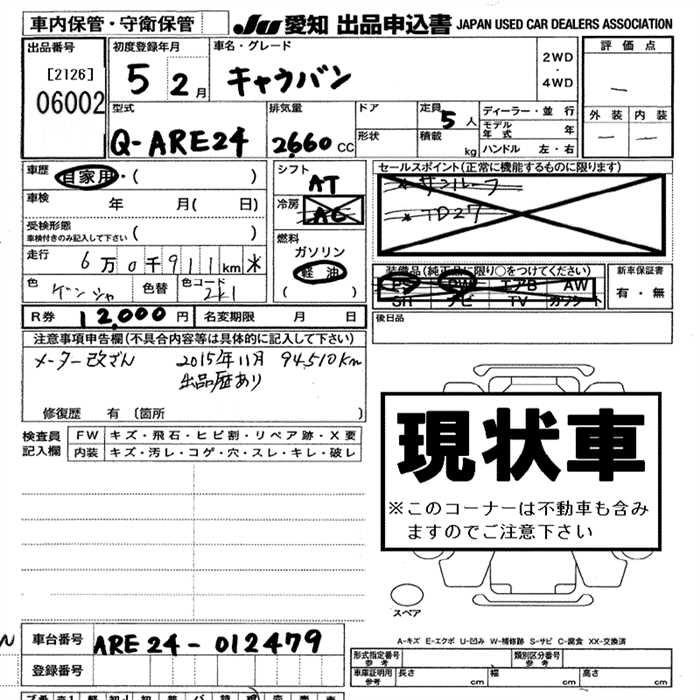 車内保管・守衛保管
JU 愛知 出品申込書 JAPAN USED CAR DEALERS ASSOCIATION
出品番号 初度登録年月 車名・グレード 評価点
[2126] 5 2月 キャラバン 2WD・4WD
06002
型式 排気量 ドア 定員 5人 ディーラー・並行 外装 内装
Q-ARE24 2660 CC 形状 積載 kg モデル年式 年
ハンドル 左・右
車歴 自家用・( ) シフト AT セールスポイント(正常に機能するものに限ります)
車検 年 月( 日) 冷房 AC サンルーフ
受検形態 ( ) TD27
車検付きのみ記入して下さい
燃料 ガソリン
走行 6万0千911km 軽油
( )
色 ゲンシャ 色替 色コード 2k1
装備品(純正品に限り○をつけてください) 新車保証書
PS PW エアB AW 有・無
SH ナビ TV カワシート
R券 12,000円 名変期限 月 日 後日品
注意事項申告欄(不具合内容等は具体的に記入して下さい)
メーター改ざん 2015年11月 94,510km
出品歴あり
修復歴 有 〔箇所 〕
検査員 FW キズ・飛石・ヒビ割・リペア跡・X要
記入欄 内装 キズ・汚レ・コゲ・穴・スレ・キレ・破レ
現状車
※このコーナーは不動車も含み
ますのでご注意下さい
スペア
A-キズ E-エクボ U-凹み W-補修跡 S-サビ C-腐食 XX-交換済
車台番号 ARE24-012479
登録番号
形式指定番号 参考 類別区分番号 参考
車庫証明用 参考 長さ cm 幅 cm 高さ cm